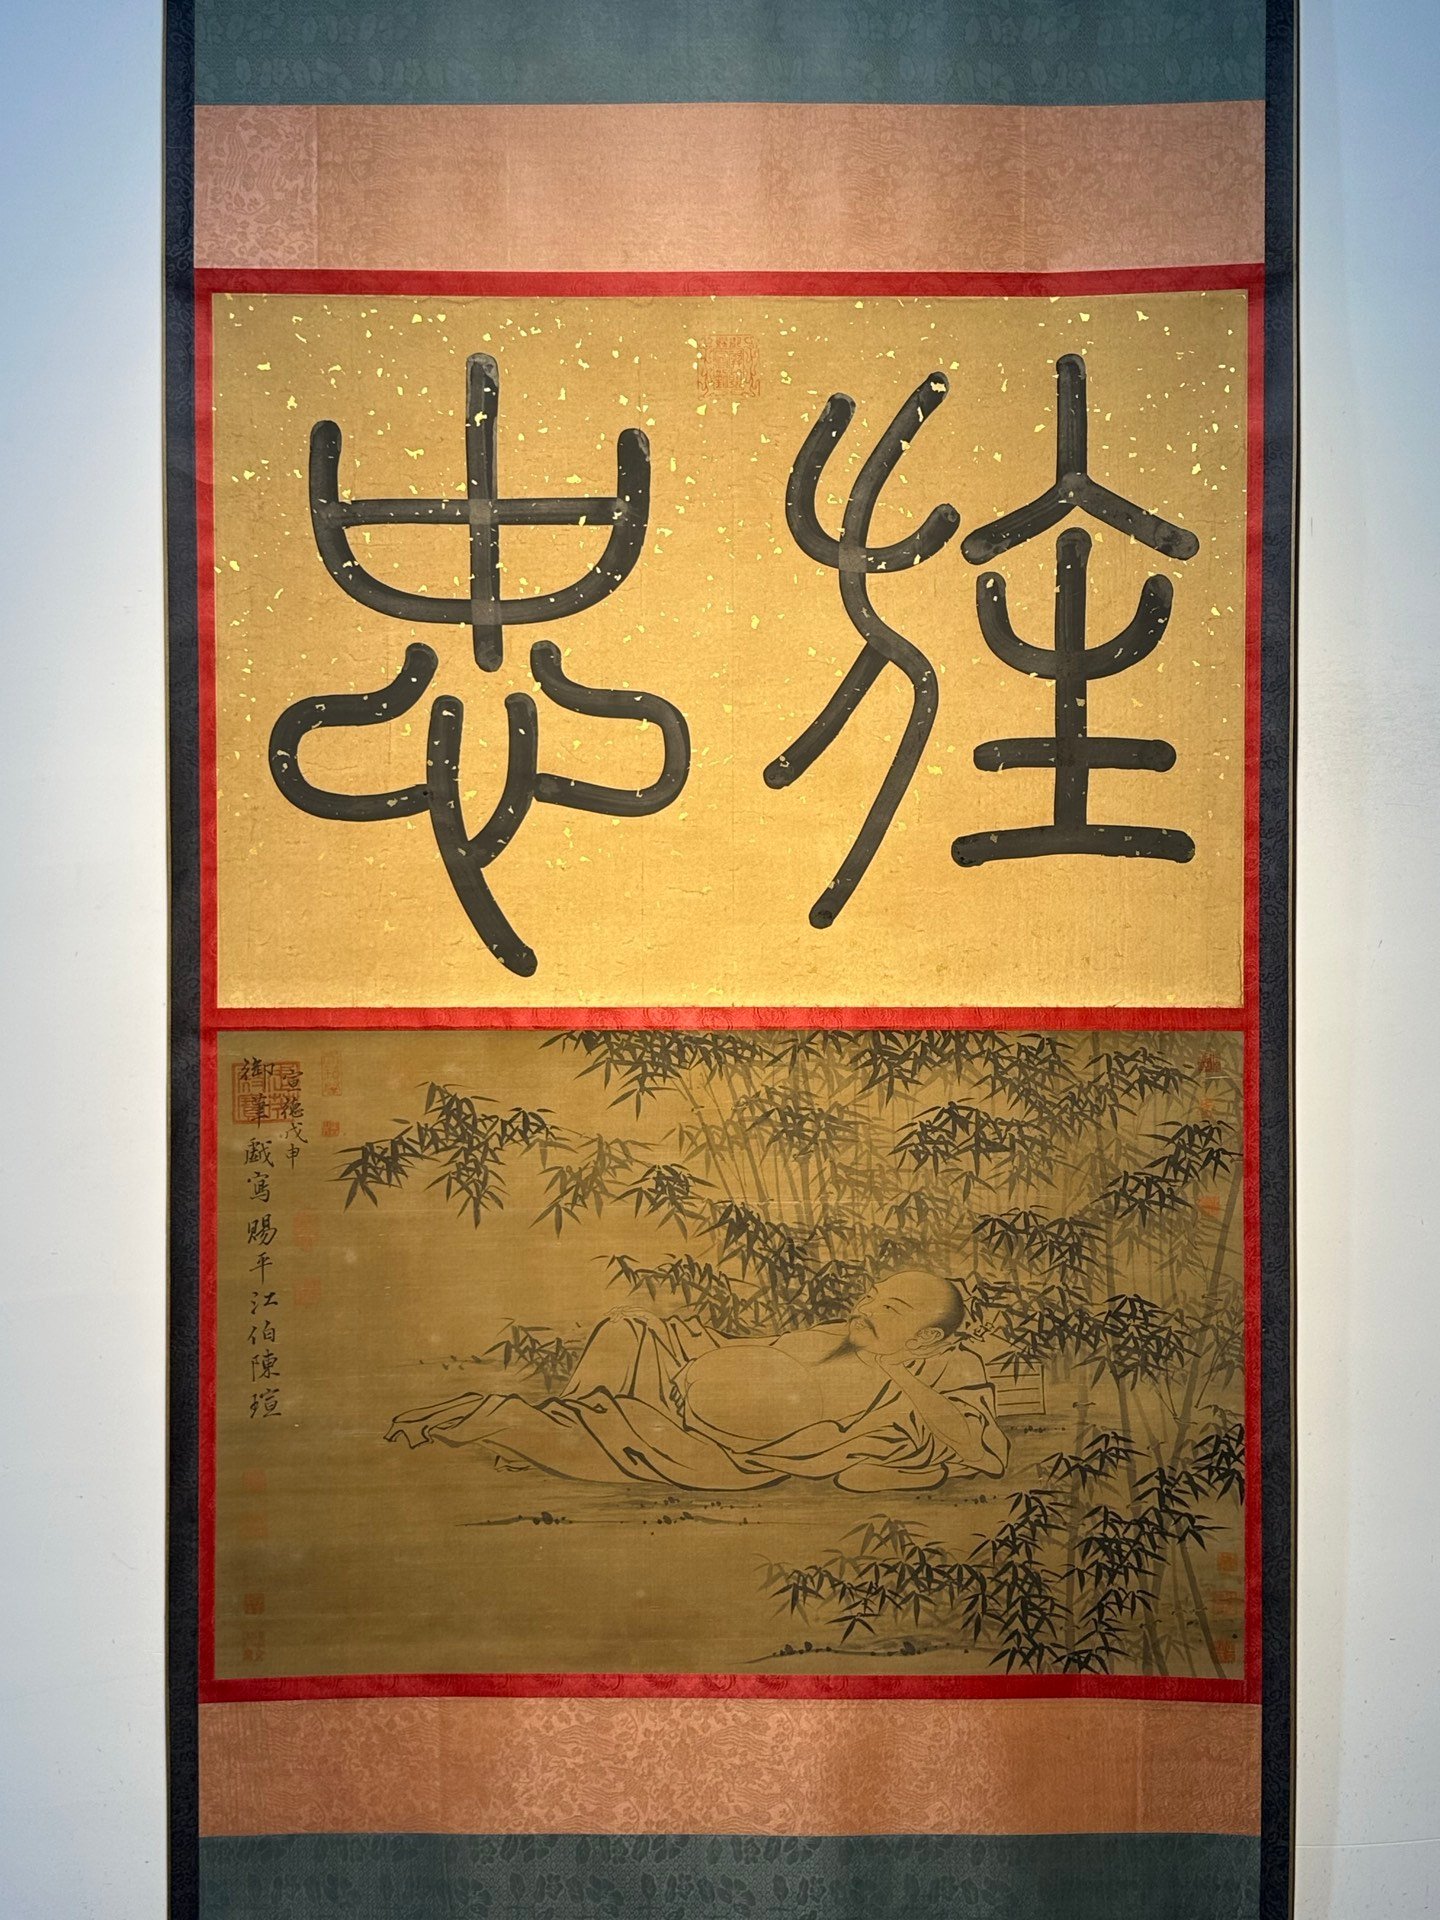 旌忠
宣德戊申
御筆戲寫賜平江伯陳瑄